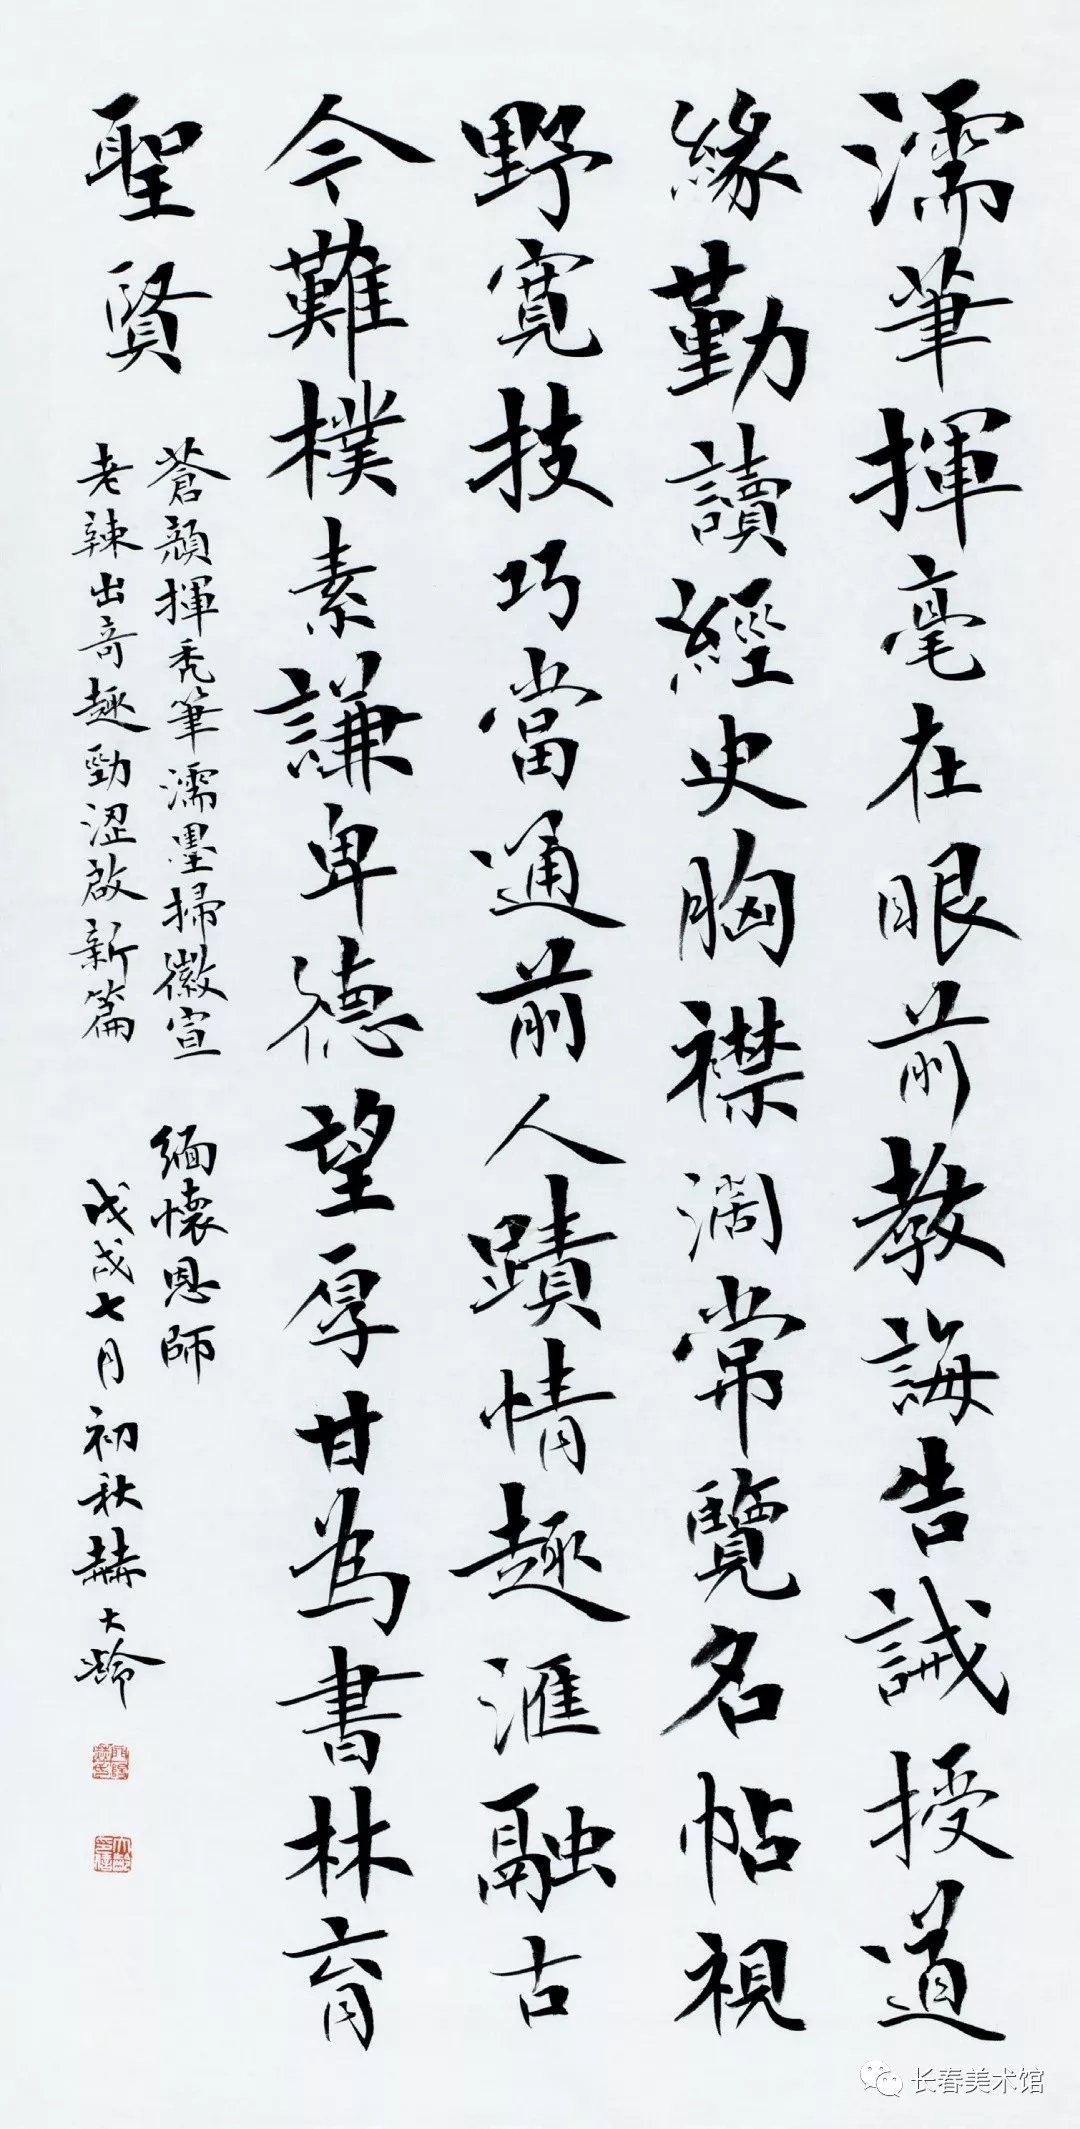 濡筆揮毫在眼前教誨告誡授道
緣勤讀經史胸襟闊常覽名帖視
野寬技巧當通前人蹟情趣滙融古
今難樸素謙卑德望厚甘為書林育
聖賢
蒼顏揮秃筆濡墨掃徽宣
老辣出奇趣勁涩啟新篇
緬懷恩師
戊戌七月初秋赫大龄
长春美术馆